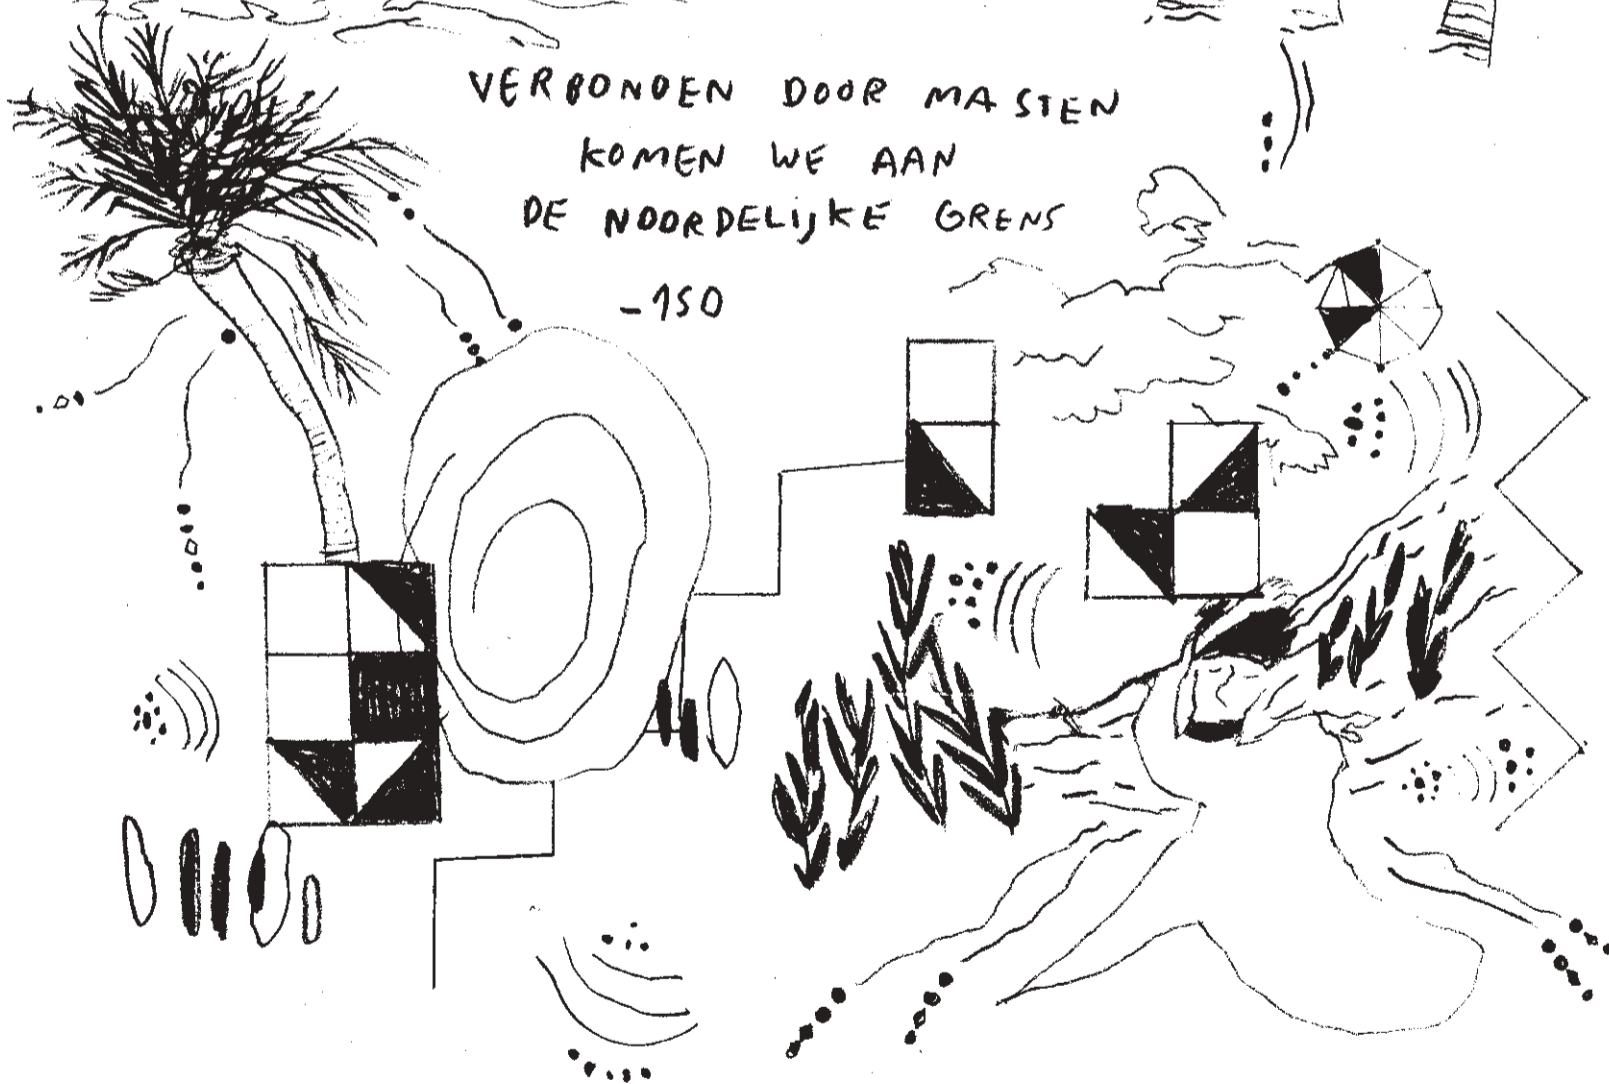 VERBONDEN DOOR MASTEN
KOMEN WE AAN
DE NOORDELIJKE GRENS
-150